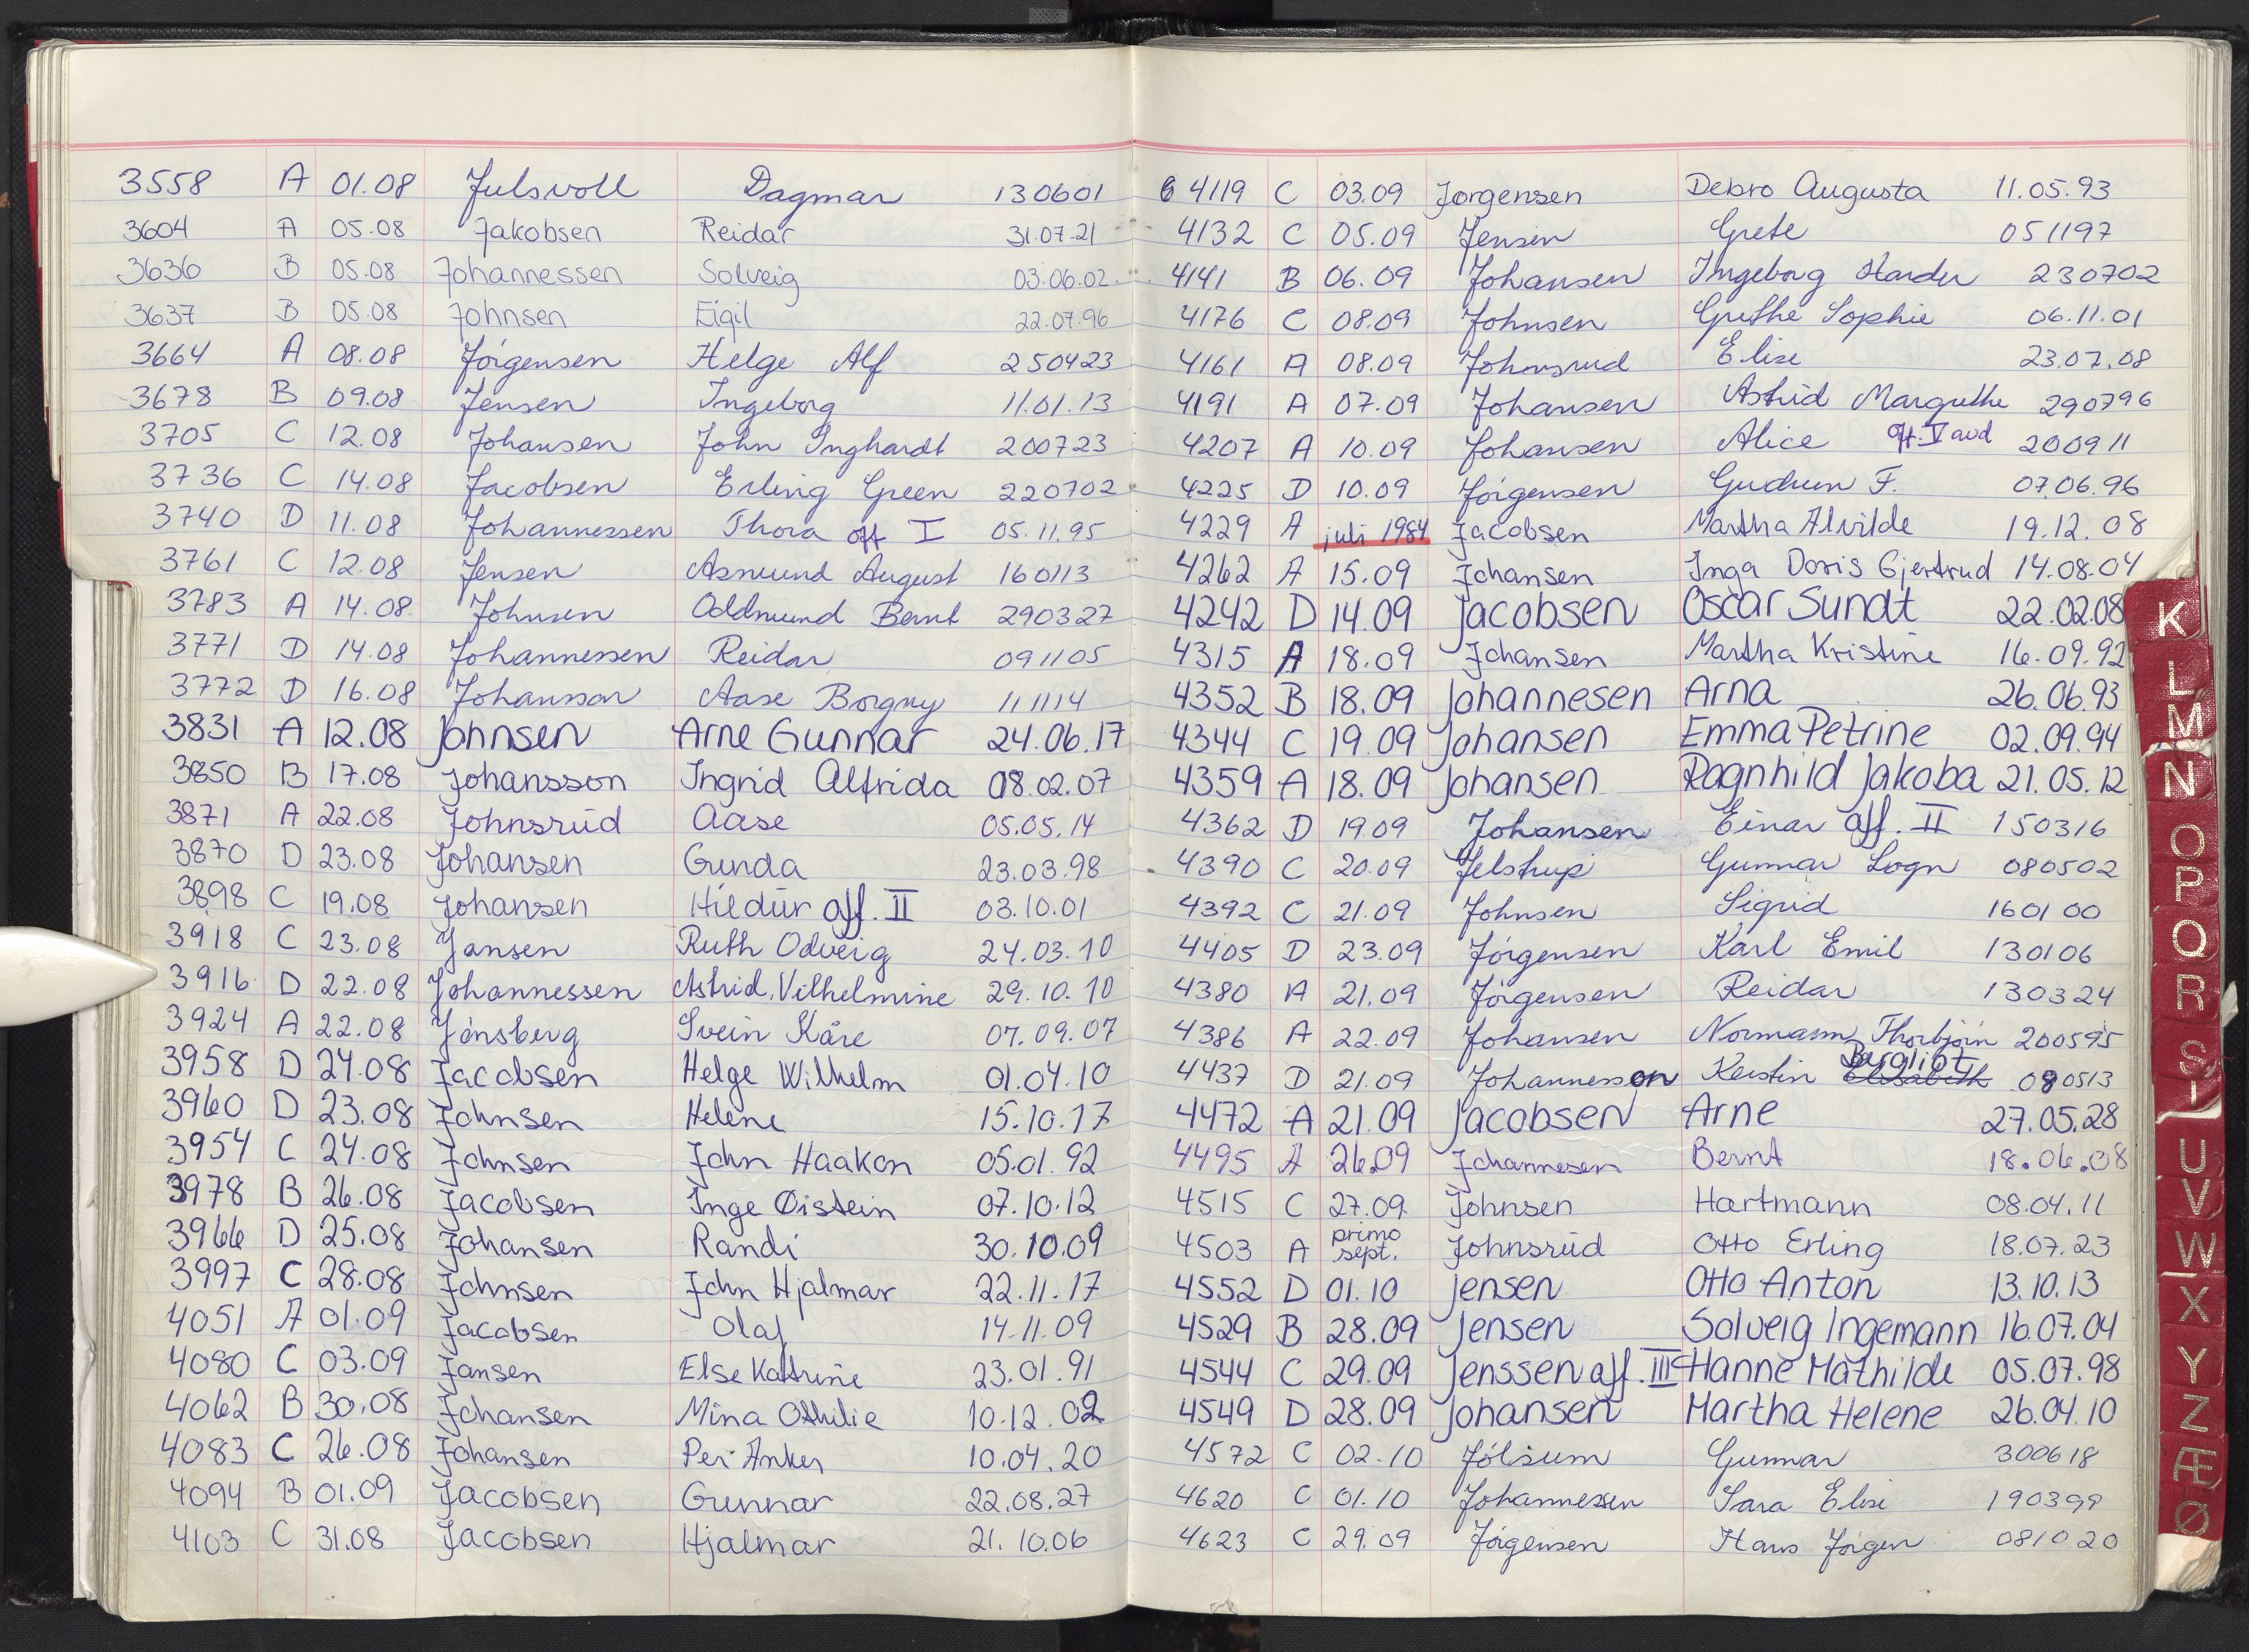 3558 A 01.08 Julsvoll Dagmar 130601
3604 A 05.08 Jakobsen Reidar 31.07.21
3636 B 05.08 Johannessen Solveig 03.06.02
3637 B 05.08 Johnsen Eigil 22.07.96
3664 A 08.08 Jörgensen Helge Alf 250423
3678 B 09.08 Jensen Ingeborg 11.01.13
3705 C 12.08 Johansen John Inghardt 200723
3736 C 14.08 Jacobsen Erling Green 220702
3740 D 11.08 Johannessen Thora off I 05.11.95
3761 C 12.08 Jensen Asmund August 160113
3783 A 14.08 Johnsen Oddmund Bernt 290327
3771 D 14.08 Johannessen Reidar 091105
3772 D 16.08 Johansson Aase Borgny 111114
3831 A 12.08 Johnsen Arne Gunnar 24.06.17
3850 B 17.08 Johansson Ingrid Alfrida 08.02.07
3871 A 22.08 Johnsrud Aase 05.05.14
3870 D 23.08 Johansen Gunda 23.03.98
3898 C 19.08 Johansen Hildur aff. II 03.10.01
3918 C 23.08 Jansen Ruth Odveig 24.03.10
3916 D 22.08 Johannessen Astrid Vilhelmine 29.10.10
3924 A 22.08 Jönsberg Svein Kåre 07.09.07
3958 D 24.08 Jacobsen Helge Wilhelm 01.04.10
3960 D 23.08 Johnsen Helene 15.10.17
3954 C 24.08 Johnsen John Haakon 05.01.92
3978 B 26.08 Jacobsen Inge Øistein 07.10.12
3966 D 25.08 Johansen Randi 30.10.09
3997 C 28.08 Johnsen John Hjalmar 22.11.17
4051 A 01.09 Jacobsen Olaf 14.11.09
4080 C 03.09 Jansen Else Katrine 23.01.91
4062 B 30.08 Johansen Mina Othilie 10.12.02
4083 C 26.08 Johansen Per Anker 10.04.20
4094 B 01.09 Jacobsen Gunnar 22.08.27
4103 C 31.08 Jacobsen Hjalmar 21.10.06
4119 C 03.09 Jorgensen Debro Augusta 11.05.93
4132 C 05.09 Jensen Grete 051197
4141 B 06.09 Johansen Ingeborg Harder 230702
4176 C 08.09 Johnsen Grethe Sophie 06.11.01
4161 A 08.09 Johnsrud Elise 23.07.08
4191 A 07.09 Johansen Astrid Margrethe 290796
4207 A 10.09 Johansen Alice Off. V avd 200911
4225 D 10.09 Jörgensen Gudrun F. 07.06.96
4229 A juli 1984 Jacobsen Martha Alvilde 19.12.08
4262 A 15.09 Johansen Inga Doris Gjertrud 14.08.04
4242 D 14.09 Jacobsen Oscar Sundt 22.02.08
4315 A 18.09 Johansen Martha Kristine 16.09.92
4352 B 18.09 Johannesen Arna 26.06.93
4344 C 19.09 Johansen Emma Petrine 02.09.94
4359 A 18.09 Johansen Ragnhild Jakoba 21.05.12
4362 D 19.09 Johansen Einar aff. II 150316
4390 C 20.09 Jelstrup Gunnar Logn 080502
4392 C 21.09 Johnsen Sigrid 160100
4405 D 23.09 Jörgensen Karl Emil 130106
4380 A 21.09 Jörgensen Reidar 130324
4386 A 22.09 Johansen Normann Thorbjörn 200595
4437 D 21.09 Johannesson Kerstin Elisabeth Bergliot 080513
4472 A 21.09 Jacobsen Arne 27.05.28
4495 A 26.09 Johannesen Bernt 18.06.08
4515 C 27.09 Johnsen Hartmann 08.04.11
4503 A primo sept. Johnsrud Otto Erling 18.07.23
4552 D 01.10 Jensen Otto Anton 13.10.13
4529 B 28.09 Jensen Solveig Ingemann 16.07.04
4544 C 29.09 Jenssen aff. III Hanne Mathilde 05.07.98
4549 D 28.09 Johansen Martha Helene 26.04.10
4572 C 02.10 Jölsum Gunnar 300618
4620 C 01.10 Johannessen Sara Elise 190399
4623 C 29.09 Jörgensen Hans Jörgen 081020
K
L
M
N
O
P
Q
R
S
T
U
V
W
X
Y
Z
Æ
Ø